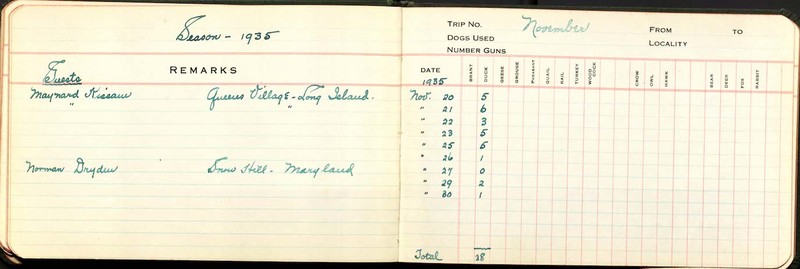 Season - 1935
Guests
REMARKS
Maynard Nissam Queens Village - Long Island.
" "
Norman Dryden Snow Hill - Maryland
TRIP NO. November FROM TO
DOGS USED LOCALITY
NUMBER GUNS
DATE BRANT DUCK GEESE GROUSE PHEASANT QUAIL RAIL TURKEY WOOD COCK CROW OWL HAWK BEAR DEER FOX RABBIT
1935
Nov. 20 5
" 21 6
" 22 3
" 23 5
" 25 5
" 26 1
" 27 0
" 29 2
" 30 1
Total 28